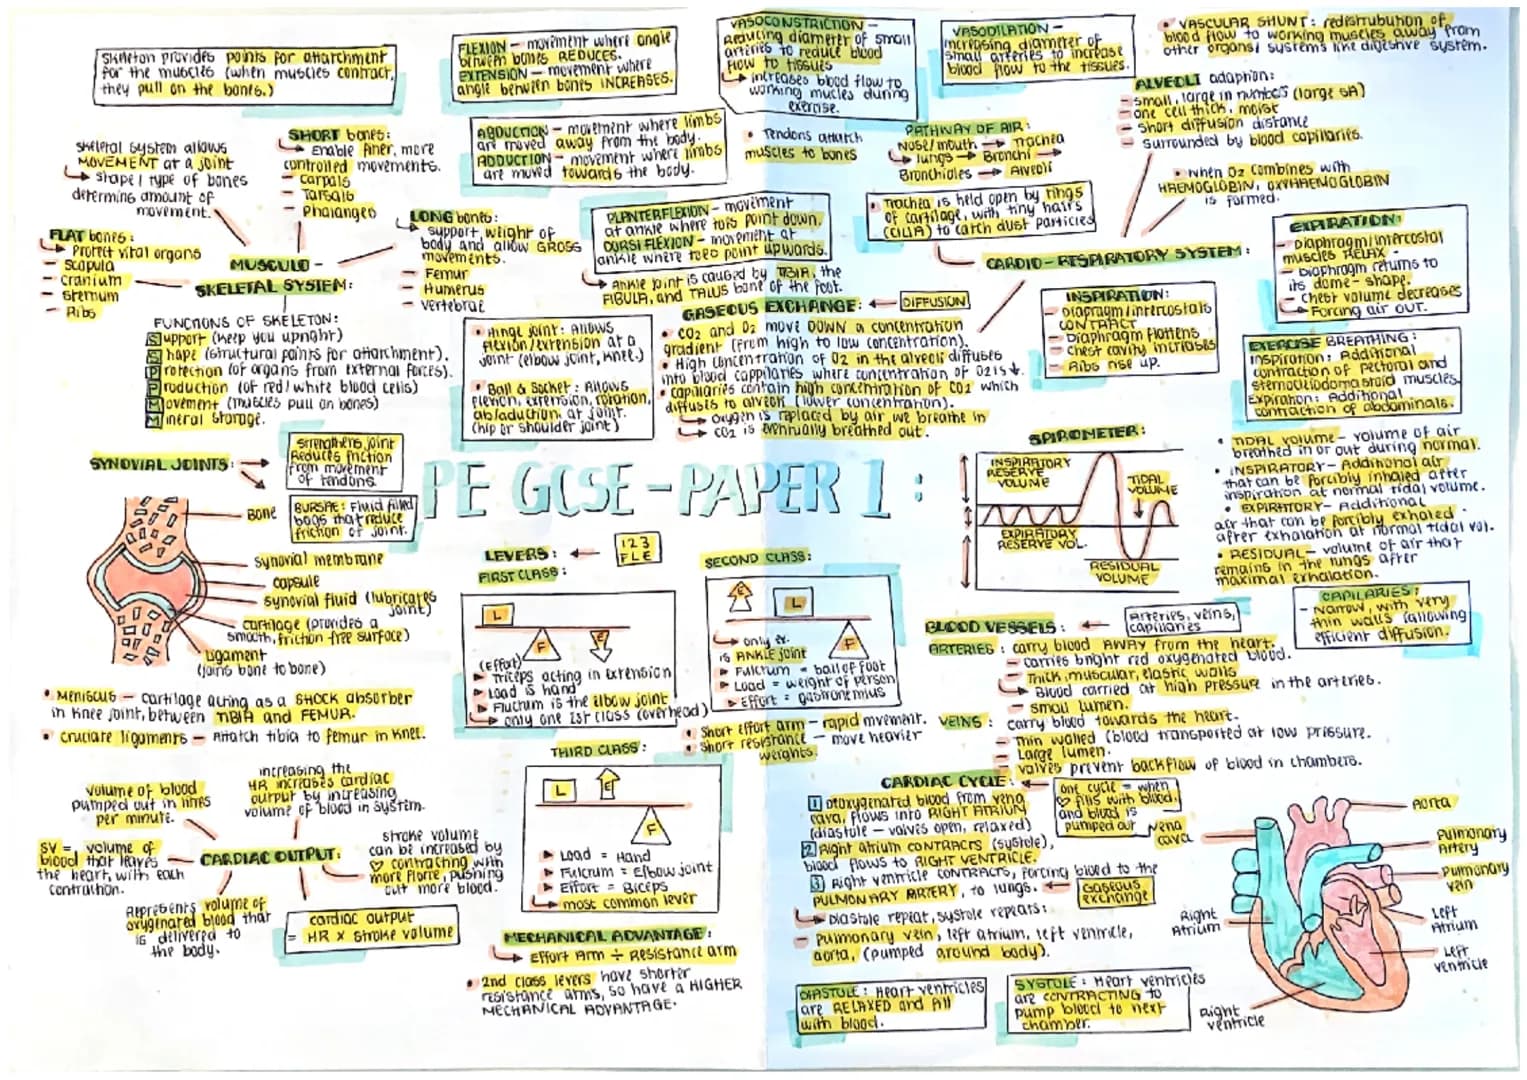 skeleton provides points for attatchment
for the muscles (when muscles contract,
they pull on the bones.)
FLEXION – movement where angle
between bones REDUCES.
EXTENSION – movement where
angle between bones INCREASES.
VASOCONSTRICTION –
Reducing diameter of small
arteries to reduce blood
flow to tissues
increases blood flow to
working mucles during
exercise.
VASODILATION –
increasing diameter of
small arteries to increase
blood flow to the tissues.
• VASCULAR SHUNT: redistrubution of
blood flow to working muscles away from
other organs/systems like digestive system.
ALVEOLI adaption:
– small, large in numbers (large SA)
– one cell thick, moist
– short diffusion distance
– surrounded by blood capillaries.
ABDUCTION – movement where limbs
are moved away from the body.
ADDUCTION – movement where limbs
are moved towards the body.
• Tendons attatch
muscles to bones
PATHWAY OF AIR:
Nose/mouth → Trachea
→ lungs → Bronchi →
Bronchioles → Alveoli
• when O2 combines with
HAEMOGLOBIN, OXYHAEMOGLOBIN
is formed.
skeletal system allows
MOVEMENT at a joint
shape/type of bones
determins amount of
movement.
SHORT bones:
Enable finer, more
controlled movements.
– Carpals
– Tarsals
– Phalanges
LONG bones:
support, weight of
body and allow GROSS
movements.
– Femur
– Humerus
– Vertebrae
FLAT bones:
Protect vital organs
– Scapula
– cranium
– sternum
– Ribs
MUSCULO –
SKELETAL SYSTEM:
PLANTERFLEXION – movement
at ankle where toes point down.
DORSIFLEXION – movement at
ankle where toes point upwards.
Ankle joint is caused by TIBIA, the
FIBULA, and TALUS bone of the foot.
• Trachea is held open by rings
of cartilage, with tiny hairs
(CILIA) to catch dust particles
CARDIO – RESPIRATORY SYSTEM:
EXPIRATION:
– Diaphragm/intercostal
muscles RELAX –
– Diaphragm returns to
its dome – shape.
– Chest volume decreases
Forcing air out.
INSPIRATION:
– Diaphragm/intercostals
CONTRACT
– Diaphragm flattens
– chest cavity increases
– Ribs rise up.
FUNCTIONS OF SKELETON:
Support (keep you upright)
Shape (structural points for attatchment).
Protection (of organs from external forces).
Production (of red/white blood cells)
Movement (muscles pull on bones)
Mineral storage.
• Hinge joint: Allows
flexion/extension at a
joint (elbow joint, knee.)
• Ball & Socket: Allows
flexion, extension, rotation,
ab/adduction, at joint.
(hip or shoulder joint)
GASEOUS EXCHANGE: ← DIFFUSION
• CO2 and O2 move DOWN a concentration
gradient (from high to low concentration).
• High concentration of O2 in the alveoli diffuses
into blood cappilaries where concentration of O2 is ↓.
• capillaries contain high concentration of CO2 which
diffuses to alveoli (lower concentration).
Oxygen is replaced by air we breathe in
CO2 is eventually breathed out.
EXERCISE BREATHING:
Inspiration: Additional
contraction of pectoral and
sternocleidomastoid muscles
Expiration: Additional
contraction of abdominals.
SYNOVIAL JOINTS:
strengthens joint
Reduces friction
from movement
of tendons.
BURSAE: Fluid filled
bags that reduce
friction of joint.
Bone
synovial membrane
capsule
synovial fluid (lubricates
joint)
cartilage (provides a
smooth, friction free surface)
Ligament
(joins bone to bone)
PE GCSE – PAPER 1 :
SPIROMETER:
INSPIRATORY
RESERVE
VOLUME
TIDAL
VOLUME
EXPIRATORY
RESERVE VOL.
RESIDUAL
VOLUME
• TIDAL VOLUME – volume of air
breathed in or out during normal.
• INSPIRATORY – Additional air
that can be forcibly inhaled after
inspiration at normal tidal volume.
• EXPIRATORY – Additional
air that can be forcibly exhaled
after exhalation at normal tidal vol.
• RESIDUAL – volume of air that
remains in the lungs after
maximal exhalation.
LEVERS: ← 123
FLE
FIRST CLASS:
L
F
E
(Effort)
Triceps acting in extension
Load is hand
Fluctrum is the elbow joint
only one 1st class (overhead)
SECOND CLASS:
E
L
F
only ex.
is ANKLE joint
Fulctrum = ball of foot
Load = weight of person
Effort = gastrocnemius
• Short effort arm – rapid mvement.
• Short resistance – move heavier
weights.
BLOOD VESSELS: ← Arteries, veins,
capillaries
CAPILARIES:
– Narrow, with very
thin walls (allowing
efficient diffusion.
ARTERIES: carry blood AWAY from the heart.
– carries bright red oxygenated blood.
– Thick, muscular, elastic walls
Blood carried at high pressure in the arteries.
– small lumen.
VEINS: carry blood towards the heart.
– Thin walled (blood transported at low pressure.
– Large lumen.
– valves prevent backflow of blood in chambers.
• Meniscus – cartilage acting as a SHOCK absorber
in knee joint, between TIBIA and FEMUR.
• cruciate ligaments – Attatch tibia to femur in knee.
THIRD CLASS:
L
E
F
Load = Hand
Fulcrum = Elbow joint
Effort = Biceps
most common lever
volume of blood
pumped out in litres
per minute.
increasing the
HR increases cardiac
output by increasing
volume of blood in system.
SV = volume of
blood that leaves
the heart, with each
contraction.
CARDIAC OUTPUT:
stroke volume
can be increased by
♡ contracting with
more force, pushing
out more blood.
Represents volume of
oxygenated blood that
is delivered to
the body.
cardiac output
= HR x stroke volume
MECHANICAL ADVANTAGE:
Effort Arm ÷ Resistance arm
• 2nd class levers have shorter
resistance arms, so have a HIGHER
MECHANICAL ADVANTAGE.
CARDIAC CYCLE:
one cycle = when
♡ fills with blood
and blood is
pumped out
1 Deoxygenated blood from vena
cava, flows into RIGHT ATRIUM
(diastole – valves open, relaxed)
2 Right atrium CONTRACTS (systole),
blood flows to RIGHT VENTRICLE.
3 Right ventricle CONTRACTS, forcing blood to the
PULMONARY ARTERY, to lungs. ← Gaseous
exchange
Diastole repeat, systole repeats:
– Pulmonary vein, left atrium, left ventricle,
aorta, (pumped around body).
DIASTOLE: Heart ventricles
are RELAXED and fill
with blood.
SYSTOLE: Heart ventricles
are CONTRACTING to
pump blood to next
chamber.
Aorta
vena
cava
Pulmonary
Artery
Pulmonary
vein
Right
Atrium
Left
Atrium
Left
ventricle
Right
ventricle